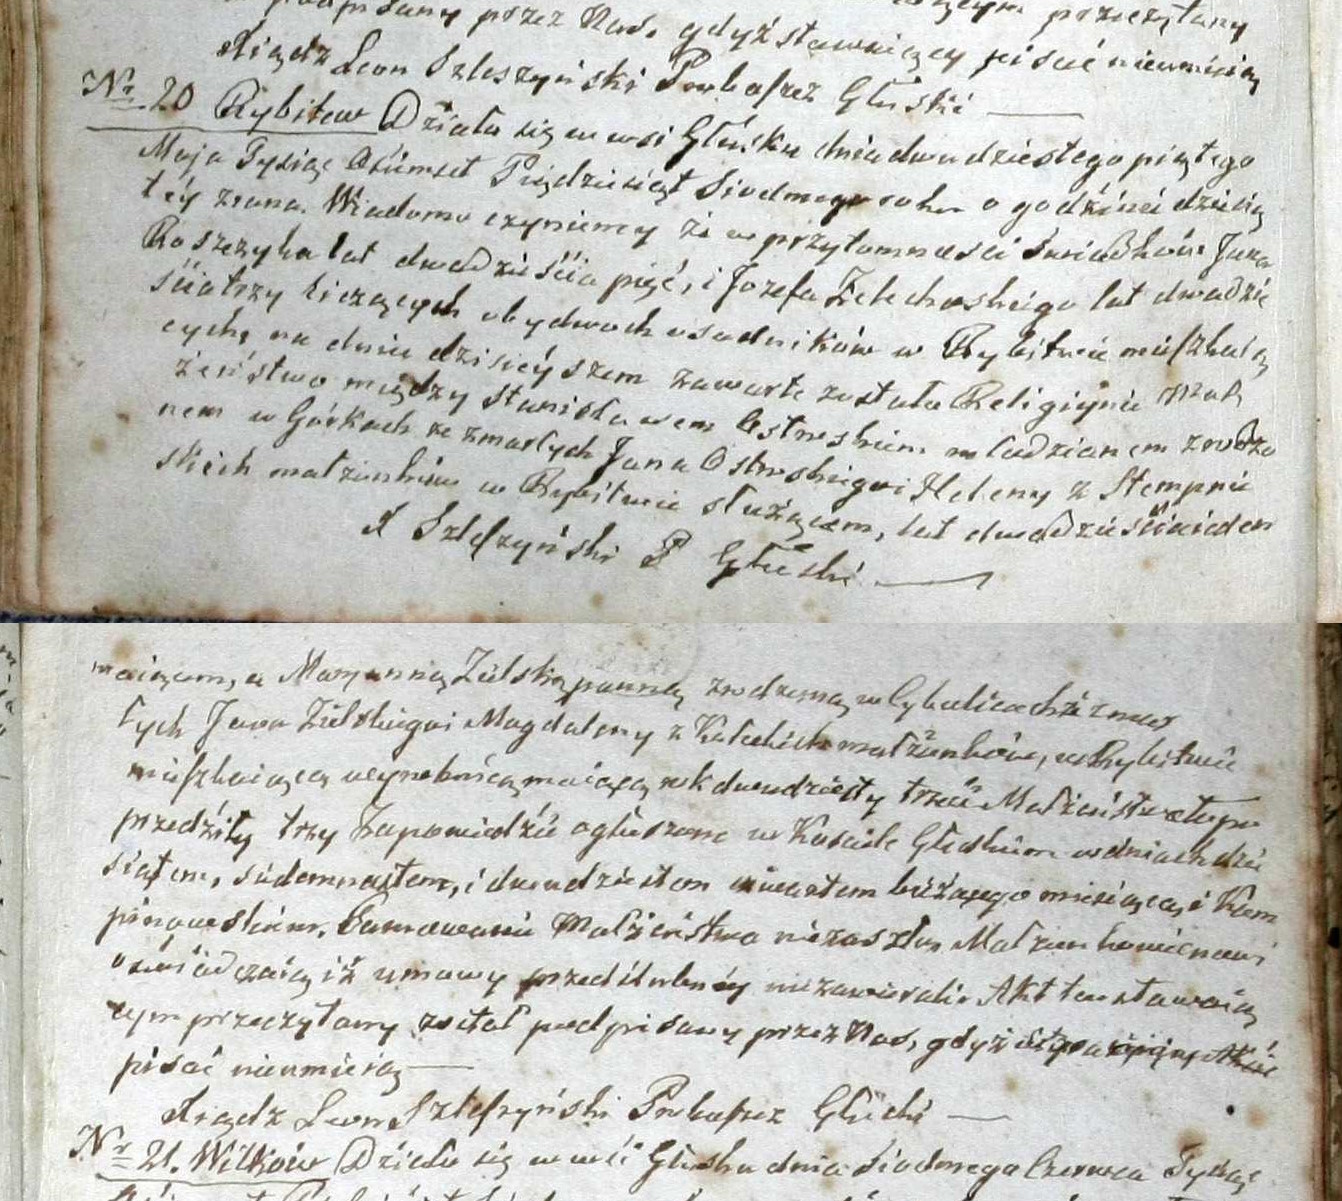 podpisany przez Nas, gdyż stawaiący pisać nieumieią
Xiądz Leon Szleszyński Proboszcz Głuski
Nr 20 Rybitew Działo się w wsi Głusku dnia dwudziestego piątego
Maja Tysiąc Ośmset Pięćdziesiąt Siodmego roku o godzinie dziesią
téy zrana. Wiadomo czyniemy że w przytomności Świadków Jana
Roszczyka lat dwadzieścia pięć, i Jozefa Zelechoskiego lat dwadzie
ścia trzy liczących obydwoch osadników w Rybitwie mieszkaią
cych, na dniu dzisieyszem zawarte zostało Religijne Mał
żeństwo między Stanisławem Ostroskim młodzianem zrodzo
nem w Górkach ze zmarłych Jana Ostroskiego i Heleny z Stempnie
skich małżonków w Rybitwie służącem, lat dwadzieścia ieden
X Szleszyński P Głuski
maiącem, a Maryanną Zielską panną zrodzoną w Cybulicach ze zmar
łych Jana Zielskiego i Magdaleny z małżonków, w Rybitwie
mieszkaiącą wyrobnicą maiącą rok dwudziesty trzeci Małżeństwo to po
przedziły trzy Zapowiedzie ogłoszone w Kościele Głuskim w dniach dzie
siątem, siedemnastem, i dwudziestem czwartem bieżącego miesiąca, i Kam
pinoweskim. Tamowanie Małżeństwa niezaszło. Małżonkowie nowi
oświadczaią iż umowy przedślubnéy niezawierali. Akt ten stawaią
cym przeczytany został podpisany przez Nas, gdyż
pisać nieumieią
Xiądz Leon Szleszyński Proboszcz Głuski
Nr 21. Wilków Działo się w wsi Głusku dnia Siodmego Czerwca Tysiąc